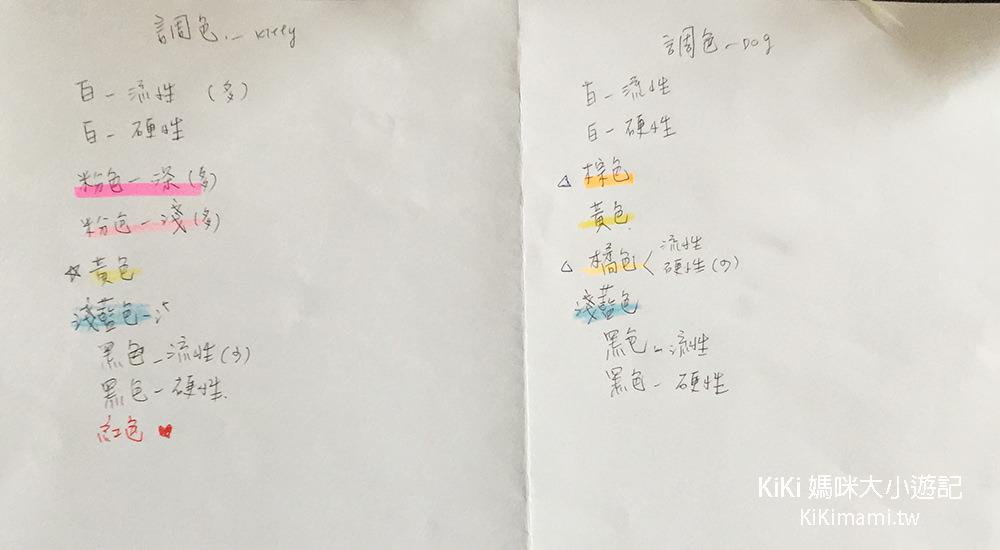 調色._ Kitty
白 - 流性 (多)
白 - 硬性
粉色 - 深 (多)
粉色 - 淺 (多)
☆ 黃色
淺藍色 -
黑色 - 流性 (少)
黑色 - 硬性.
紅色 ♥
調色 - Dog
白 - 流性
白 - 硬性
△ 棕色
黃色.
△ 橘色 < 流性
硬性 (少)
淺藍色
黑色 - 流性
黑色 - 硬性
KiKi 媽咪大小遊記
KiKimami.tw